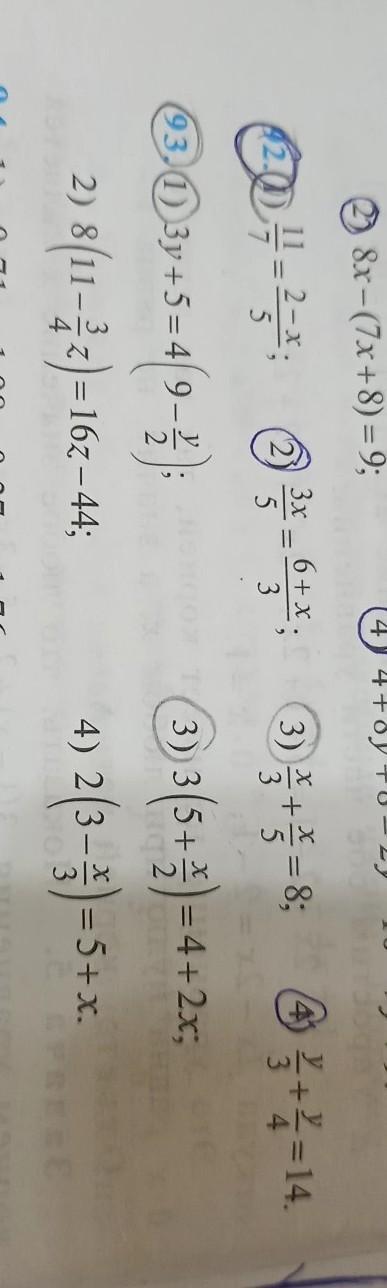 2) 8x − (7x + 8) = 9;
92. 1) 11/7 = (2 − x)/5; 2) 3x/5 = (6 + x)/3; 3) x/3 + x/5 = 8; 4) y/3 + y/4 = 14.
93. 1) 3y + 5 = 4(9 − y/2); 3) 3(5 + x/2) = 4 + 2x;
2) 8(11 − 3/4 z) = 16z − 44; 4) 2(3 − x/3) = 5 + x.